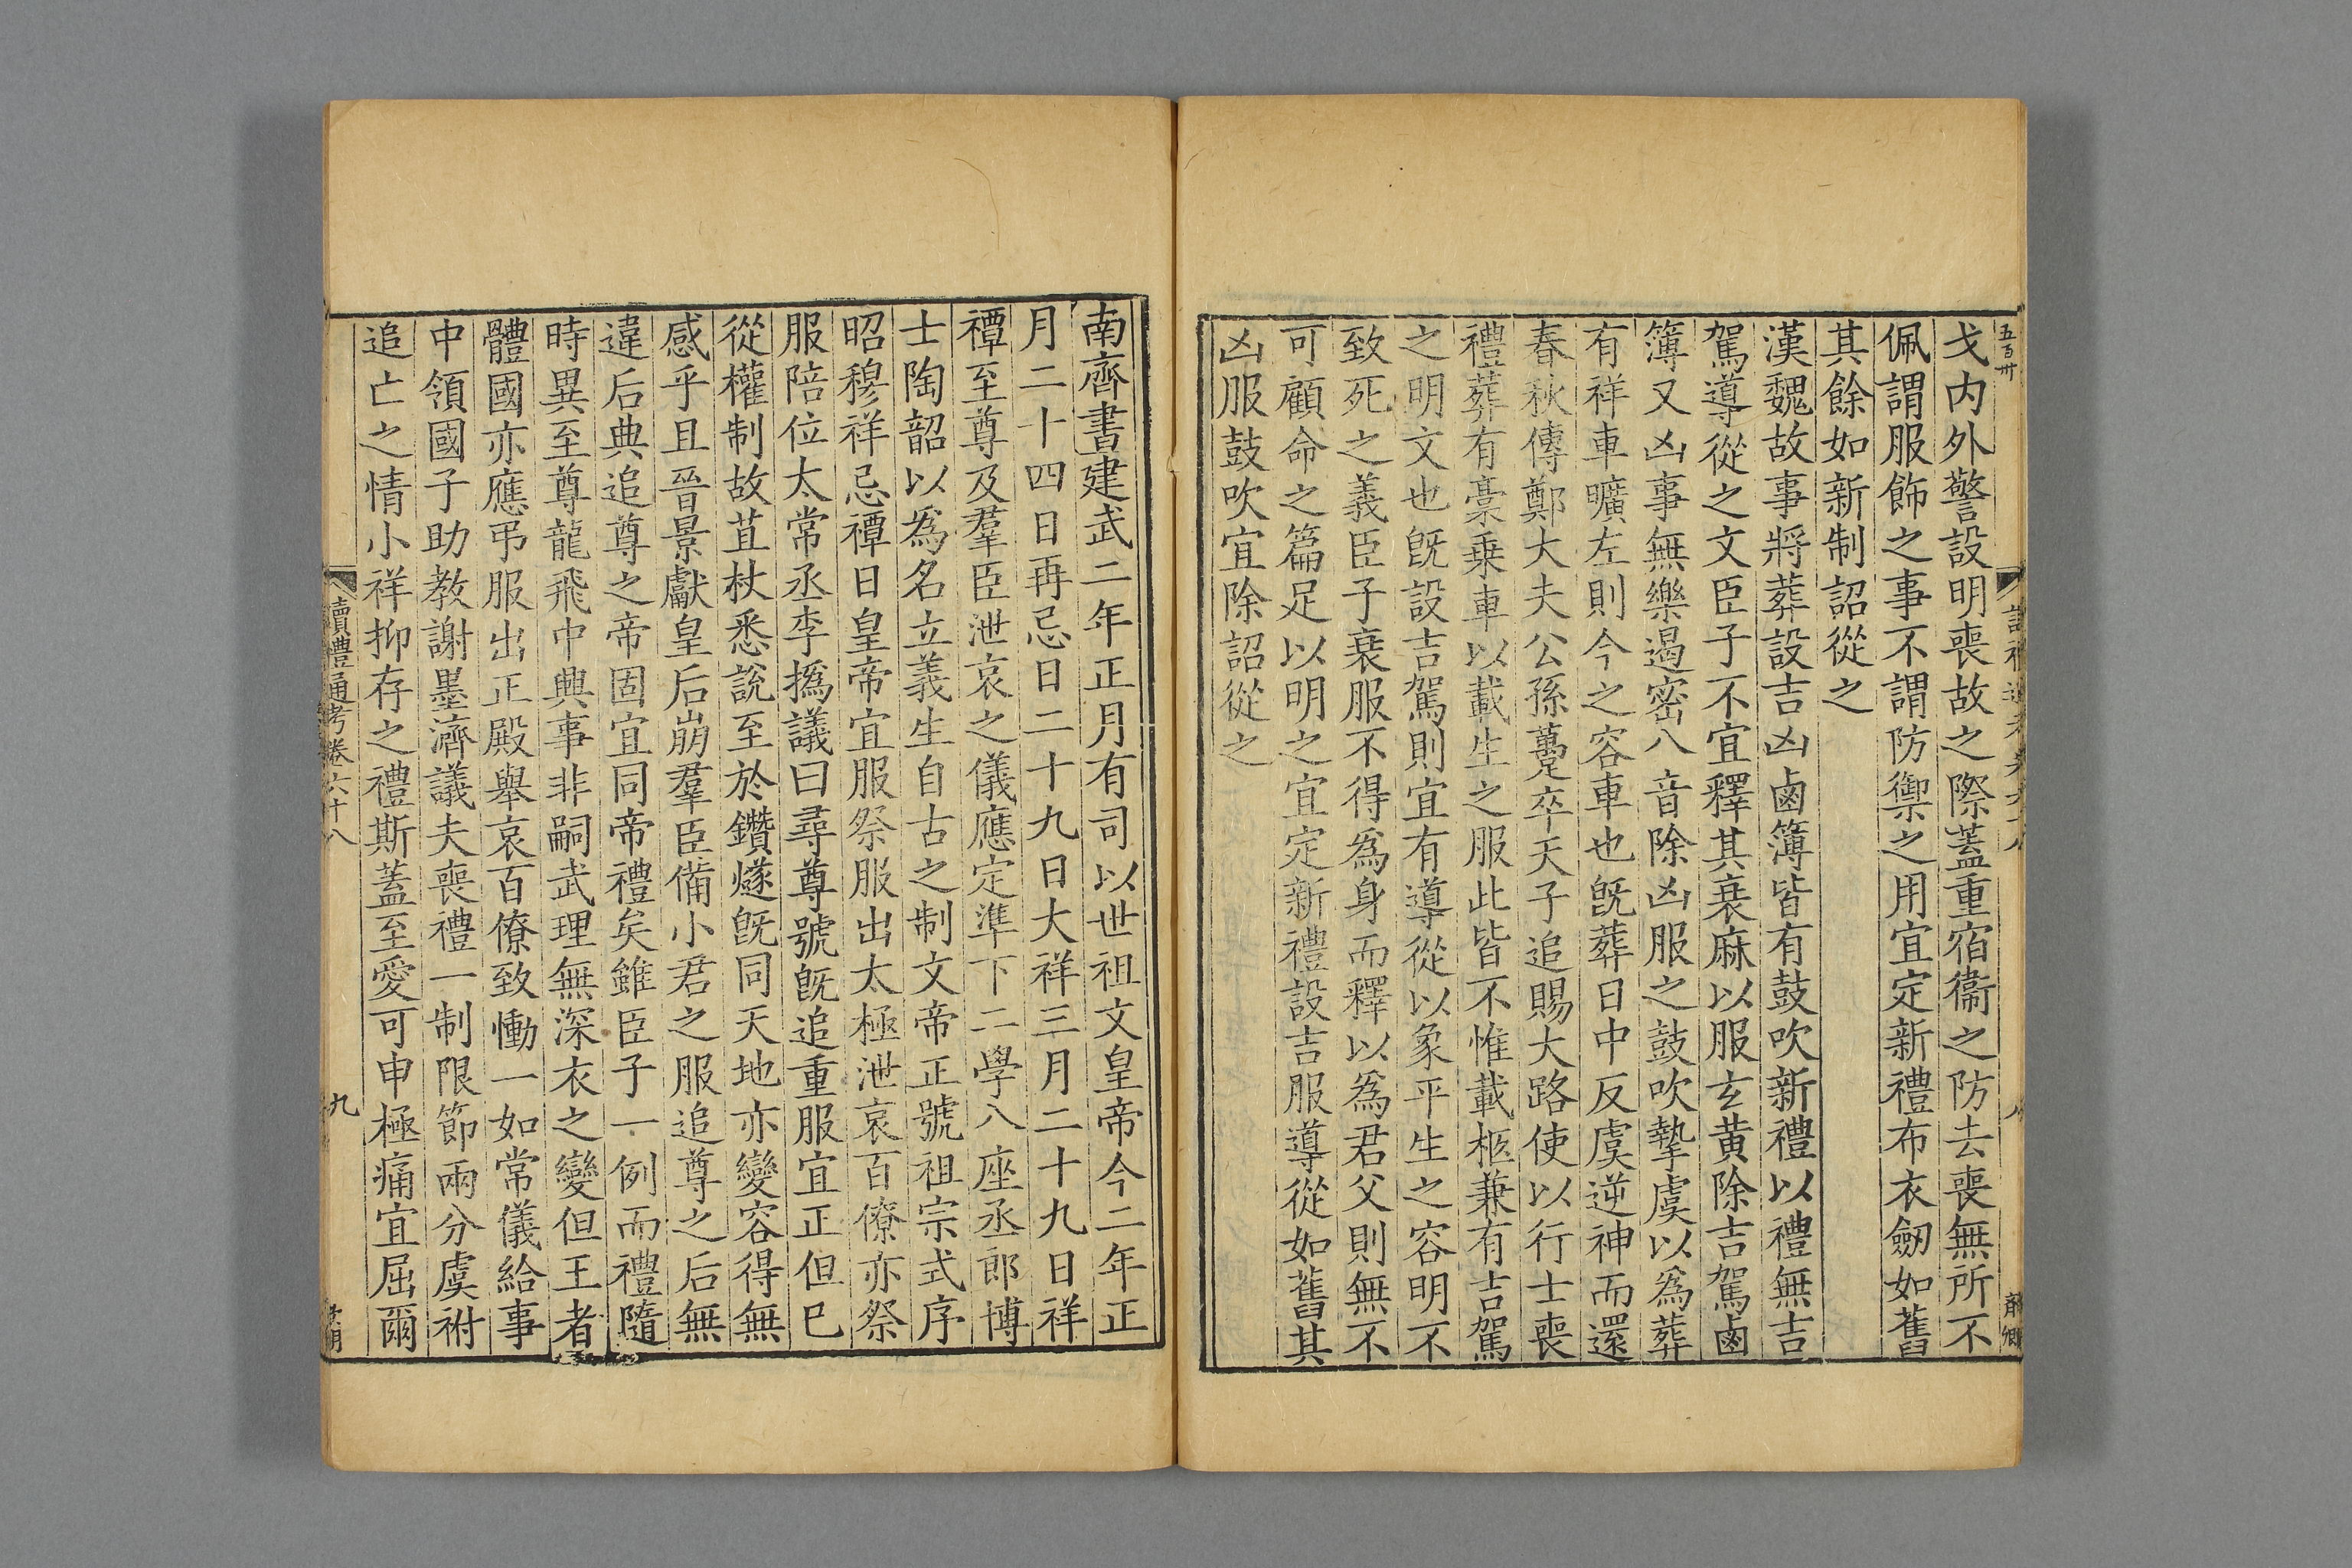 五百卅
戈内外警設明喪故之際蓋重宿衞之防去喪無所不
佩謂服飾之事不謂防禦之用宜定新禮布衣劒如舊
其餘如新制詔從之
漢魏故事將葬設吉凶鹵簿皆有鼓吹新禮以禮無吉
駕導從之文臣子不宜釋其衰麻以服玄黄除吉駕鹵
簿又凶事無樂遏密八音除凶服之鼓吹摯虞以爲葬
有祥車曠左則今之容車也旣葬日中反虞逆神而還
春秋傳鄭大夫公孫蠆卒天子追賜大路使以行士喪
禮葬有稾乗車以載生之服此皆不惟載柩兼有吉駕
之明文也旣設吉駕則宜有導從以象平生之容明不
致死之義臣子衰服不得爲身而釋以爲君父則無不
可顧命之篇足以明之宜定新禮設吉服導從如舊其
凶服鼓吹宜除詔從之
南齊書建武二年正月有司以世祖文皇帝今二年正
月二十四日再忌日二十九日大祥三月二十九日祥
禫至尊及羣臣泄哀之儀應定準下二學八座丞郎博
士陶韶以爲名立義生自古之制文帝正號祖宗式序
昭穆祥忌禫日皇帝宜服祭服出太極泄哀百僚亦祭
服陪位太常丞李撝議曰尋尊號旣追重服宜正但已
從權制故苴杖悉說至於鑽燧旣同天地亦變容得無
感乎且晉景獻皇后崩羣臣備小君之服追尊之后無
違后典追尊之帝固宜同帝禮矣雖臣子一例而禮隨
時異至尊龍飛中興事非嗣武理無深衣之變但王者
體國亦應弔服出正殿舉哀百僚致慟一如常儀給事
中領國子助教謝墨濟議夫喪禮一制限節兩分虞祔
追亡之情小祥抑存之禮斯蓋至愛可申極痛宜屈爾
讀禮通考卷六十八
九